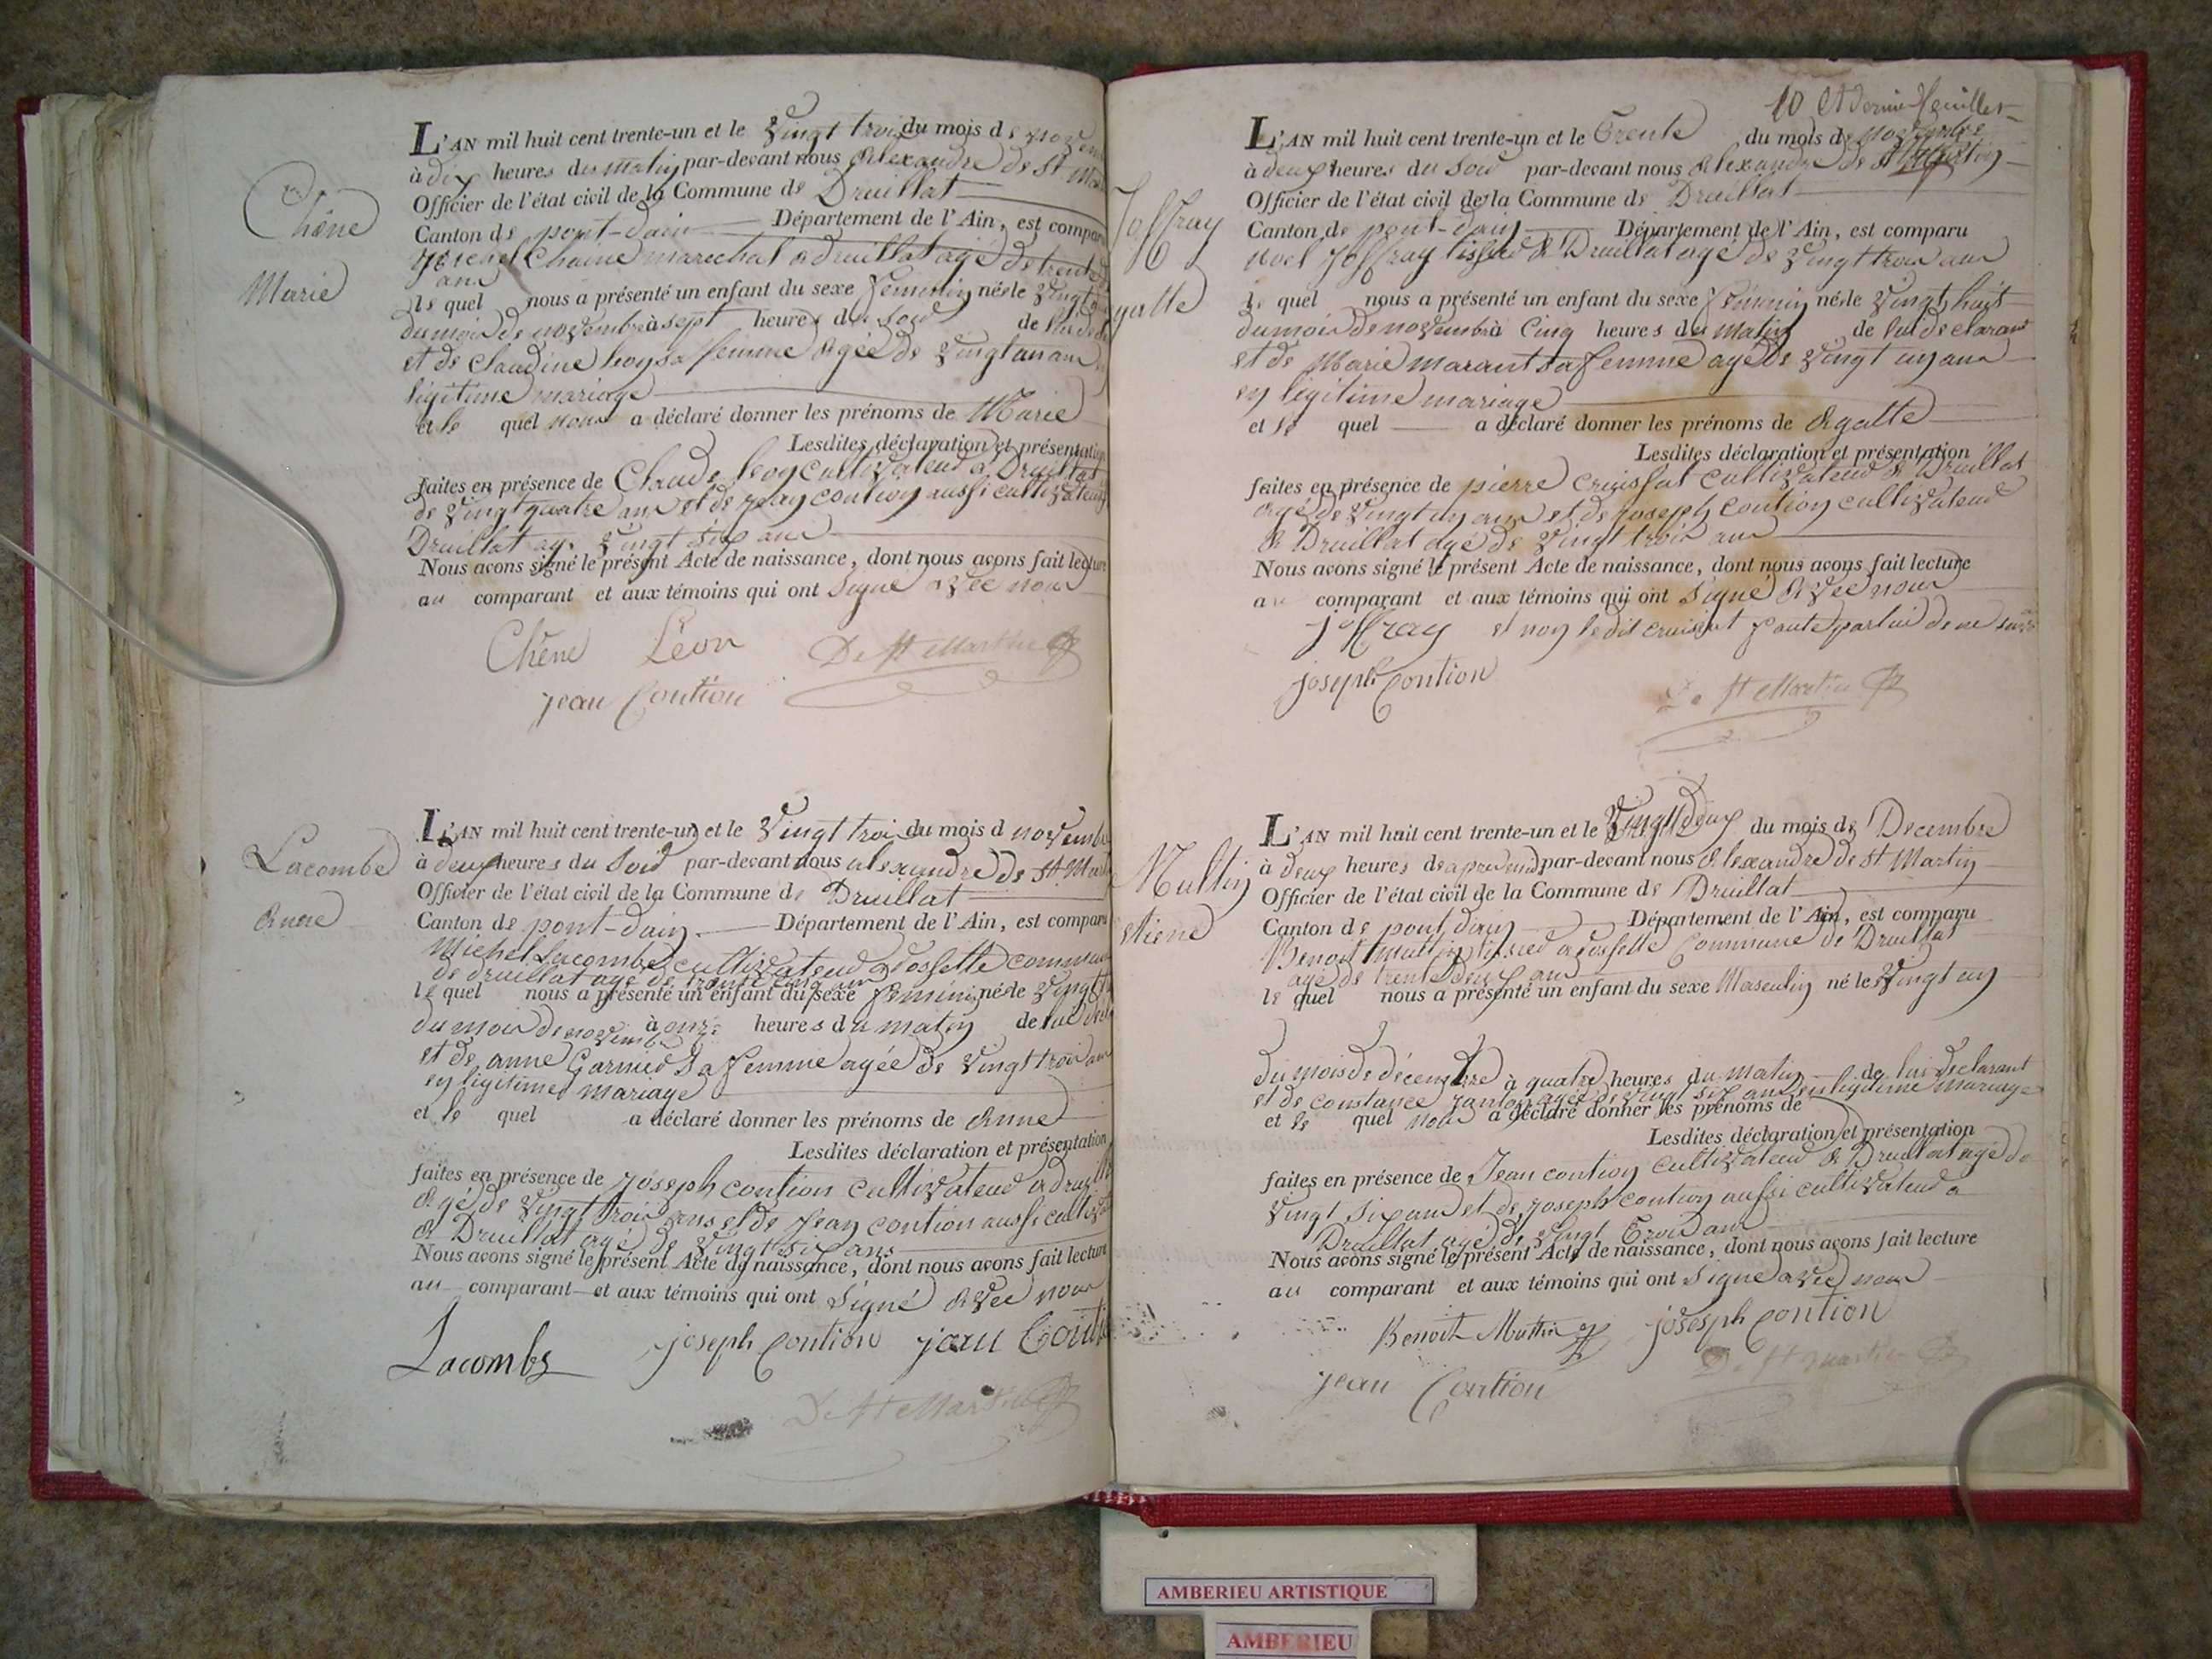 Chêne
Marie
L'AN mil huit cent trente-un et le vingt trois du mois de novem
à dix heures du matin par-devant nous alexandre de St Mar
Officier de l'état civil de la Commune de Druillat
Canton de pont-dain Département de l'Ain, est comparu
Chaine marechal a druillat agé de trente
ans
le quel nous a présenté un enfant du sexe feminin né le vingt
du mois de novembre à sept heures du soir de lui de
et de claudine leon sa femme agée de vingt un ans
ligitime mariage
et le quel nous a déclaré donner les prénoms de Marie
Lesdites déclaration et présentation
faites en présence de Claude leon cultivateur a Druillat
de vingt quatre ans et de jean contion aussi cultivateur
Druillat agé vingt six ans
Nous avons signé le présent Acte de naissance, dont nous avons fait lecture
au comparant et aux témoins qui ont signé avec nous
Chêne Léon De St Martin
jean Contion
Lacombe
anne
L'AN mil huit cent trente-un et le vingt trois du mois d novembre
à deux heures du soir par-devant nous alexandre de St Marti
Officier de l'état civil de la Commune de Druillat
Canton de pont-dain Département de l'Ain, est comparu
Michel Lacombe cultivateur a rossette commune
de druillat agé de trente cinq ans
le quel nous a présenté un enfant du sexe feminin né le vingt
du mois de novembre à onze heures du matin de lui decl
et de anne Garnier sa femme agée de vingt trois ans
en ligitime mariage
et le quel a déclaré donner les prénoms de anne
Lesdites déclaration et présentation
faites en présence de joseph contion cultivateur a druillat
agé de vingt trois ans et de jean contion aussi cultiva
a Druillat agé de vingt six ans
Nous avons signé le présent Acte de naissance, dont nous avons fait lecture
au comparant et aux témoins qui ont signé avec nous
Lacombe joseph Contion jean Conti
De St Martin
10 et dernier feuillet
Joffray
agatte
L'AN mil huit cent trente-un et le trente du mois de novembre
à deux heures du soir par-devant nous alexandre de St Martin
Officier de l'état civil de la Commune de Druillat
Canton de pont-dain Département de l'Ain, est comparu
noel joffray tisseur a Druillat agé de vingt trois ans
le quel nous a présenté un enfant du sexe féminin né le vingt huit
du mois de novembre à cinq heures du matin de lui declarant
et de Marie marant sa femme agé de vingt un ans
en ligitime mariage
et le quel a déclaré donner les prénoms de agatte
Lesdites déclaration et présentation
faites en présence de pierre cruissat cultivateur a Druillat
agé de vingt un ans et de joseph contion cultivateur
a Druillat agé de vingt trois ans
Nous avons signé le présent Acte de naissance, dont nous avons fait lecture
au comparant et aux témoins qui ont signé avec nous
joffray et non ledit cruissat faute par lui de ne savoir
joseph Contion
De St Martin
Multin
etiene
L'AN mil huit cent trente-un et le vingt deux du mois de Decembre
à deux heures de apres midi par-devant nous alexandre de St Martin
Officier de l'état civil de la Commune de Druillat
Canton de pont dain Département de l'Ain, est comparu
Benoit Multin tisseur a rossette commune de Druillat
agé de trente deux ans
le quel nous a présenté un enfant du sexe Masculin né le vingt un
du mois de décembre à quatre heures du matin de lui declarant
et de constance agée de vingt six ans en legitime mariage
et le quel nous a déclaré donner les prénoms de
Lesdites déclaration et présentation
faites en présence de Jean contion cultivateur a Druillat agé de
vingt six ans et de joseph contion aussi cultivateur a
Druillat agé de vingt trois ans
Nous avons signé le présent Acte de naissance, dont nous avons fait lecture
au comparant et aux témoins qui ont signé avec nous
Benoit Multin joseph Contion
jean Contion De St Martin
AMBERIEU ARTISTIQUE
AMBERIEU